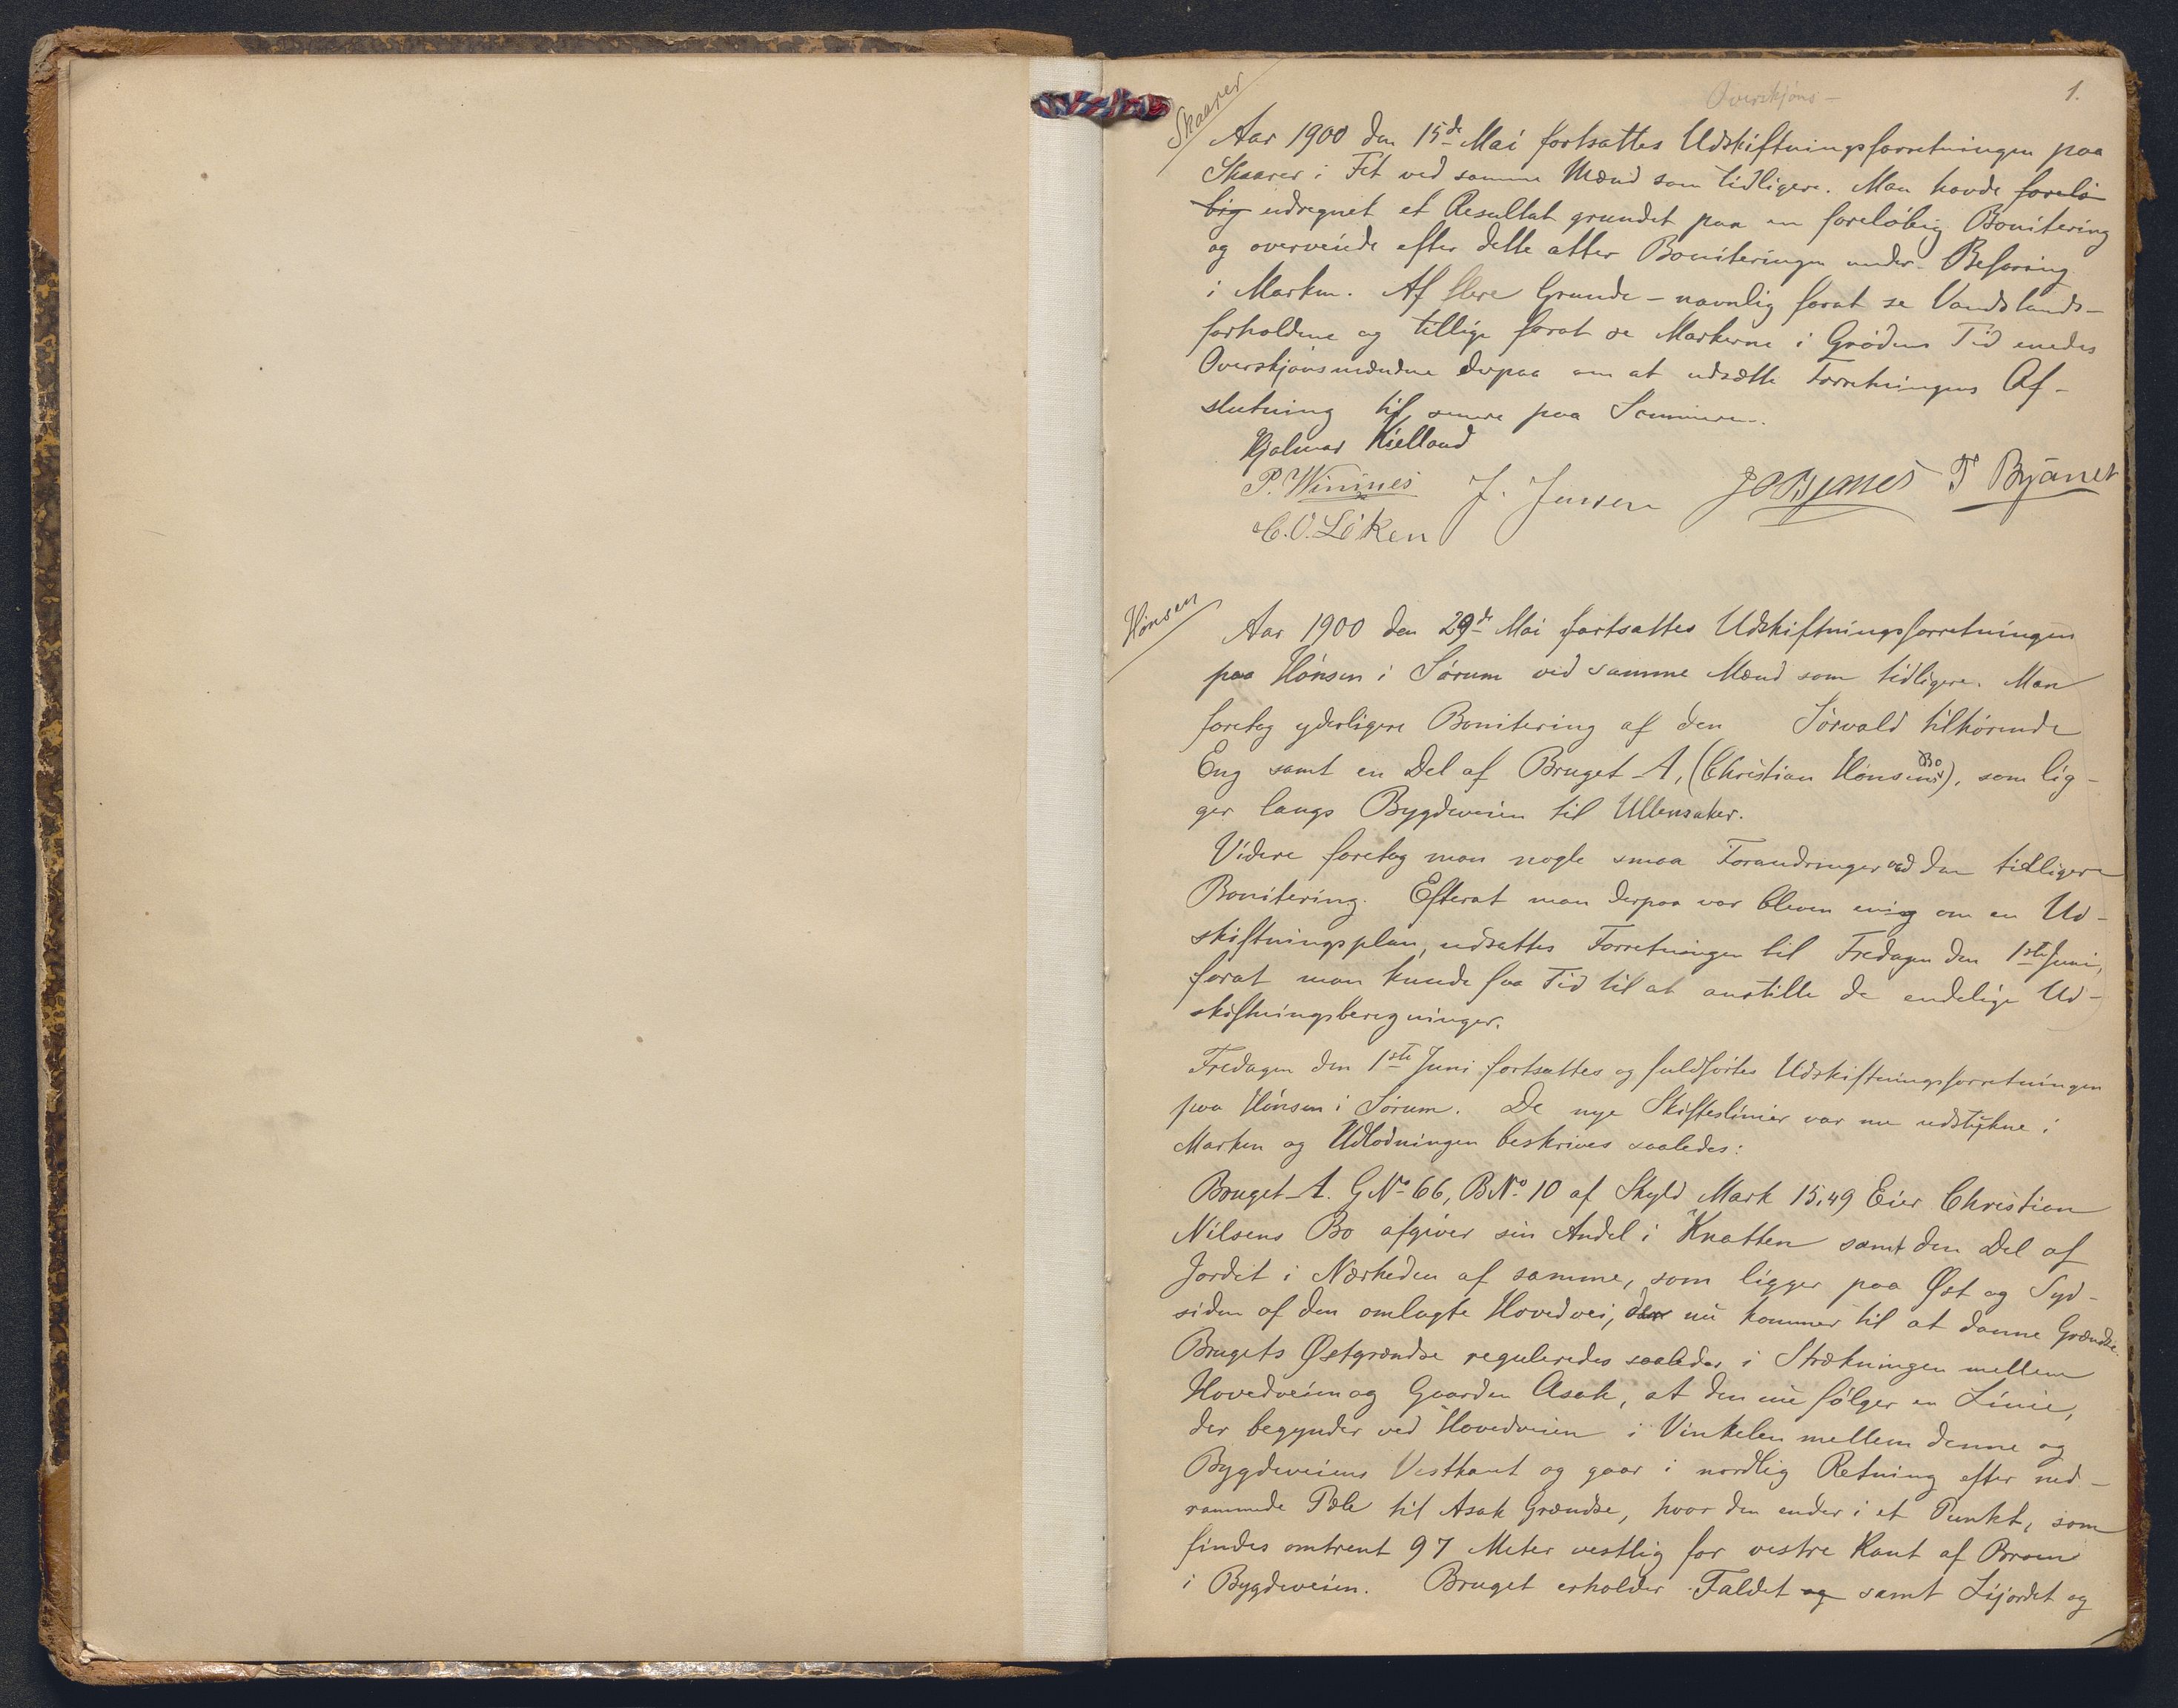 Overskjøns-
1.
Skaarer
Aar 1900 den 15de Mai fortsattes Udskiftningsforretningen paa
Skaarer i Fet ved samme Mænd som tidligere. Man havde forelø-
big udregnet et Resultat grundet paa en foreløbig Bonitering
og overveiede efter dette atter Boniteringen under Befaring
i Marken. Af flere Grunde - navnlig forat se Vandstands-
forholdene og tillige forat se Markerne i Grødens Tid enedes
Overskjønsmændene derpaa om at udsætte Forretningens Af-
slutning til senere paa Sommeren.
Hjalmar Kielland
P. Winsnes J. Jensen T Bjanes
C.O. Løken
Hønsen
Aar 1900 den 29de Mai fortsattes Udskiftningsforretningen
paa Hønsen i Sørum ved samme Mænd som tidligere. Man
foretog yderligere Bonitering af den Sørvald tilhørende
Eng samt en Del af Bruget A, (Christian Hønsens Bo), som lig-
ger langs Bygdeveien til Ullensaker.
Videre foretog man nogle smaa Forandringer ved den tidligere
Bonitering. Efterat man derpaa var bleven enig om en Ud-
skiftningsplan, udsattes Forretningen til Fredagen den 1ste Juni,
forat man kunde faa Tid til at anstille de endelige Ud-
skiftningsberegninger.
Fredagen den 1ste Juni fortsattes og fuldførtes Udskiftningsforretningen
paa Hønsen i Sørum. De nye Skifteslinier var nu udstukne i
Marken og Udlodningen beskrives saaledes:
Bruget A. G No 66, B No 10 af Skyld Mark 15,49 Eier Christian
Nilsens Bo afgiver sin Andel i Knatten samt den Del af
Jordet i Nærheden af samme, som ligger paa Øst og Syd-
siden af den omlagte Hovedvei, der nu kommer til at danne Grændse.
Brugets Østgrændse reguleredes saaledes i Strækningen mellem
Hovedveien og Gaarden Asak, at den nu følger en Linie,
der begynder ved Hovedveien i Vinkelen mellem denne og
Bygdeveiens Vestkant og gaar i nordlig Retning efter ned-
rammede Pæle til Asak Grændse, hvor den ender i et Punkt, som
findes omtrent 97 Meter vestlig for vestre Kant af Broen
i Bygdeveien. Bruget erholder Faldet og samt Lijordet og